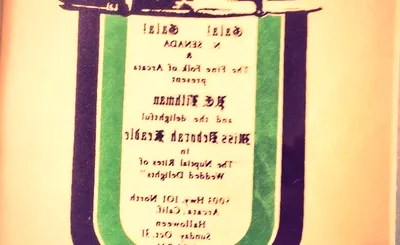 Gala! Gala!
N. SENADA
&
The Fine Folk of Arcata
present
and the delightful
Miss Deborah
in
"The Nuptial Rites of
Wedded Delights"
5001 Hwy. 101 North
Arcata, Calif.
Halloween
Sunday Oct. 31